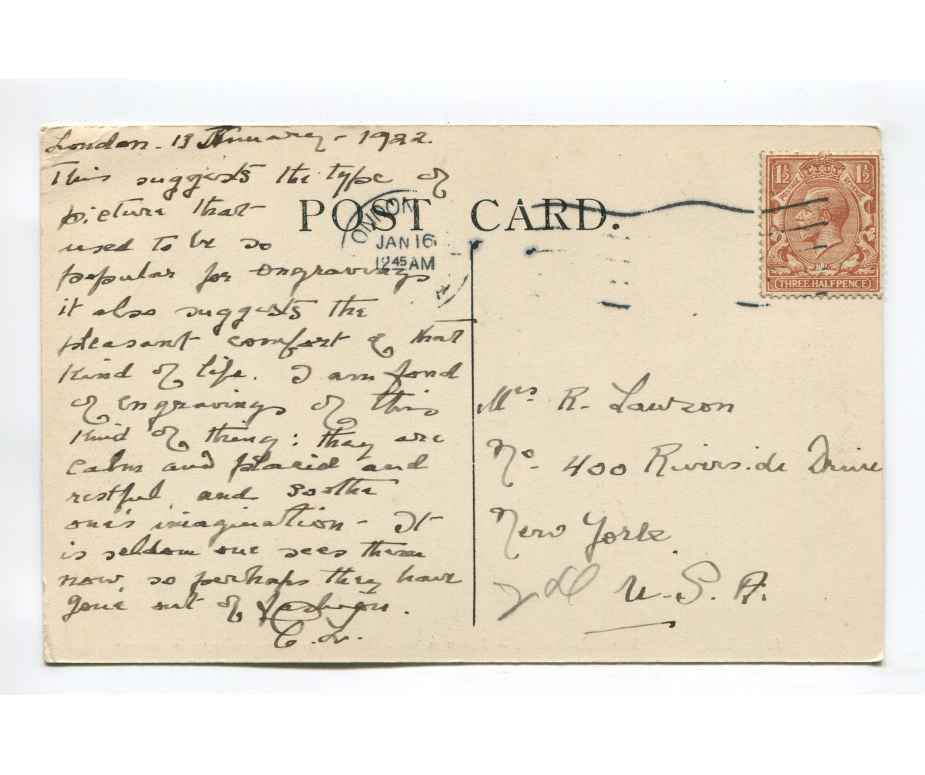 London - 13 January - 1922.
This suggests the type of
picture that
used to be so
popular for engravings
it also suggests the
pleasant comfort of that
kind of life. I am fond
of engravings of this
kind of thing: they are
calm and placid and
restful and soothe
one's imagination - It
is seldom one sees them
now so perhaps they have
gone out of fashion.
C. L.
POST CARD.
LONDON
JAN 16
12 45 AM
1½ 1½
THREE HALFPENCE
Mrs R. Lawson
No. 400 Riverside Drive
New York
U. S. A.